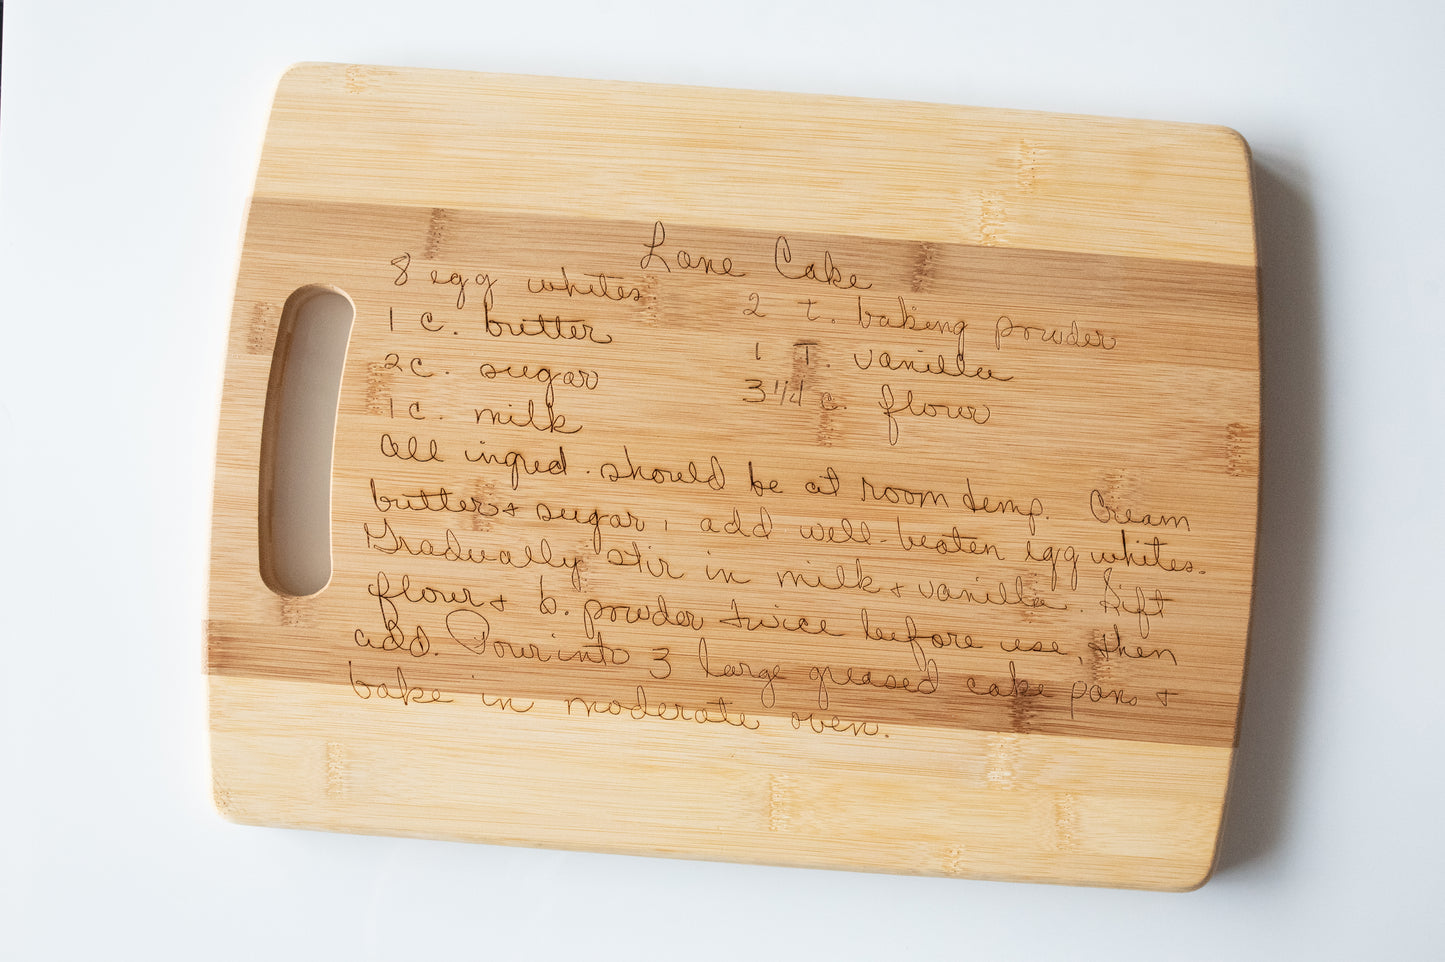 Lane Cake
8 egg whites
2 t. baking powder
1 c. butter
1 T. vanilla
2 c. sugar
3 1/4 c. flour
1 c. milk
All ingred. should be at room temp. Cream
butter + sugar, add well-beaten egg whites.
Gradually stir in milk + vanilla. Sift
flour + b. powder twice before use, then
add. Pour into 3 large greased cake pans +
bake in moderate oven.